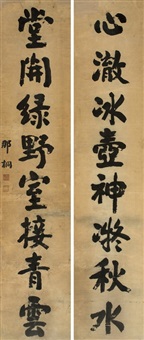 心澈冰壺神凝秋水
堂開綠野室接青雲
那桐